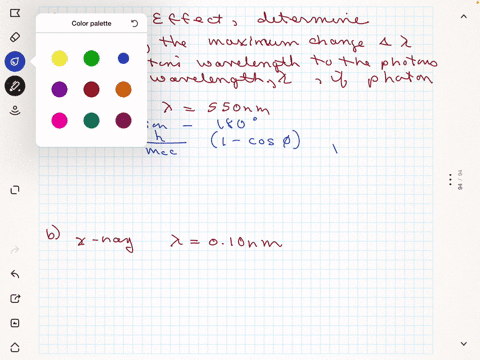 Color palette
Effect, determine
the maximum change Δ λ
wavelength to the photons
wavelength, λ, if photon
λ = 550nm
180°
h
mec (1 - cos φ)
94 / 94
b) x-ray λ = 0.10nm